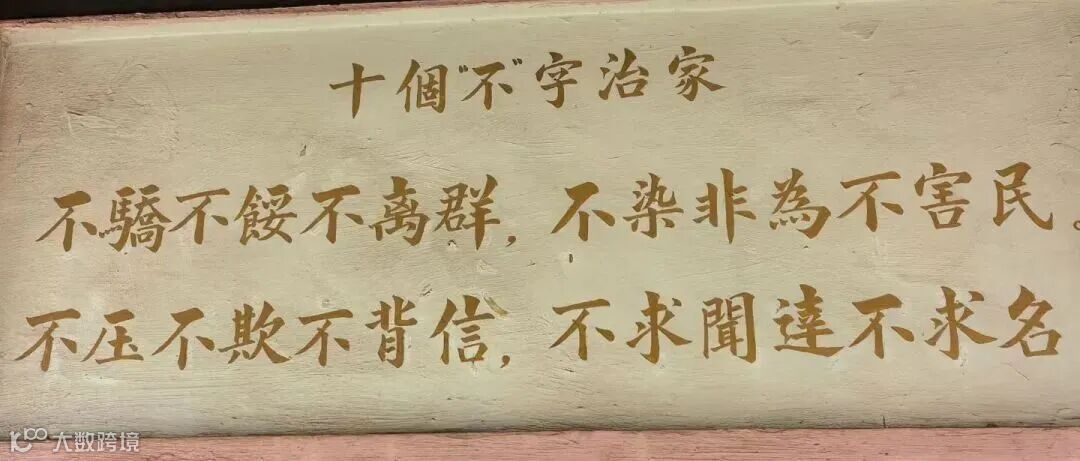 十個"不"字治家
不驕不餒不离群，不染非為不害民。
不压不欺不背信，不求聞達不求名
大数跨境